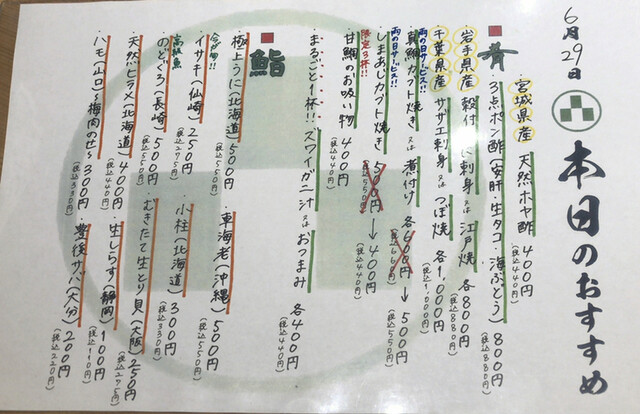 6月29日
本日のおすすめ
肴
宮城県産 天然ホヤ酢 400円 (税込440円)
・3点ポン酢(安肝・生タコ・海ぶどう) 800円 (税込880円)
岩手県産 殻付 に刺身 又は 江戸焼 各800円 (税込880円)
千葉県産 サザエ刺身 又は つぼ焼 各1,000円 (税込1,100円)
雨の日サービス!!
・真鯛カブト焼き 又は 煮付け 各600円 (税込660) → 500円 (税込550円)
雨の日サービス!!
・しまあじカブト焼き 500円 (税込550円) → 400円 (税込440円)
限定3杯!!
・甘鯛のお吸い物 400円 (税込440円)
・まるごと1杯!!ズワイガニ汁 又は おつまみ 各400円 (税込440円)
鮨
・極上うに(北海道) 500円 (税込550円)
・車海老(沖縄) 500円 (税込550円)
今が旬!!
・イサキ(仙崎) 250円 (税込275円)
・小柱(北海道) 300円 (税込330円)
高級魚
・のどぐろ(長崎) 500円 (税込550円)
・むきたて生とり貝(大阪) 250円 (税込275円)
・天然ヒラメ(北海道) 400円 (税込440円)
・生しらす(静岡) 100円 (税込110円)
・ハモ(山口)梅肉のせ〜 300円 (税込330円)
・豊後サバ(大分) 200円 (税込220円)